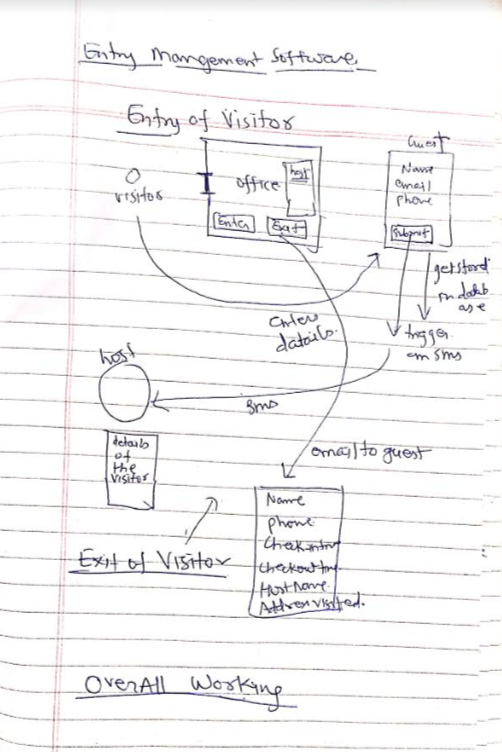 Entry Mangement Software
Entry of Visitor
visitor
office
host
Enter
Exit
Guest
Name
email
phone
Submit
get stord
in datab
ase
trigger
an sms
enters
datails.
host
sms
details
of
the
visitor
email to guest
Name
phone
Checkintm
Checkout tm
Host Name
Address visited.
Exit of Visitor
OverAll Working